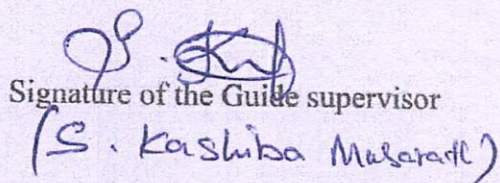 Signature of the Guide supervisor
(S. Kashiba